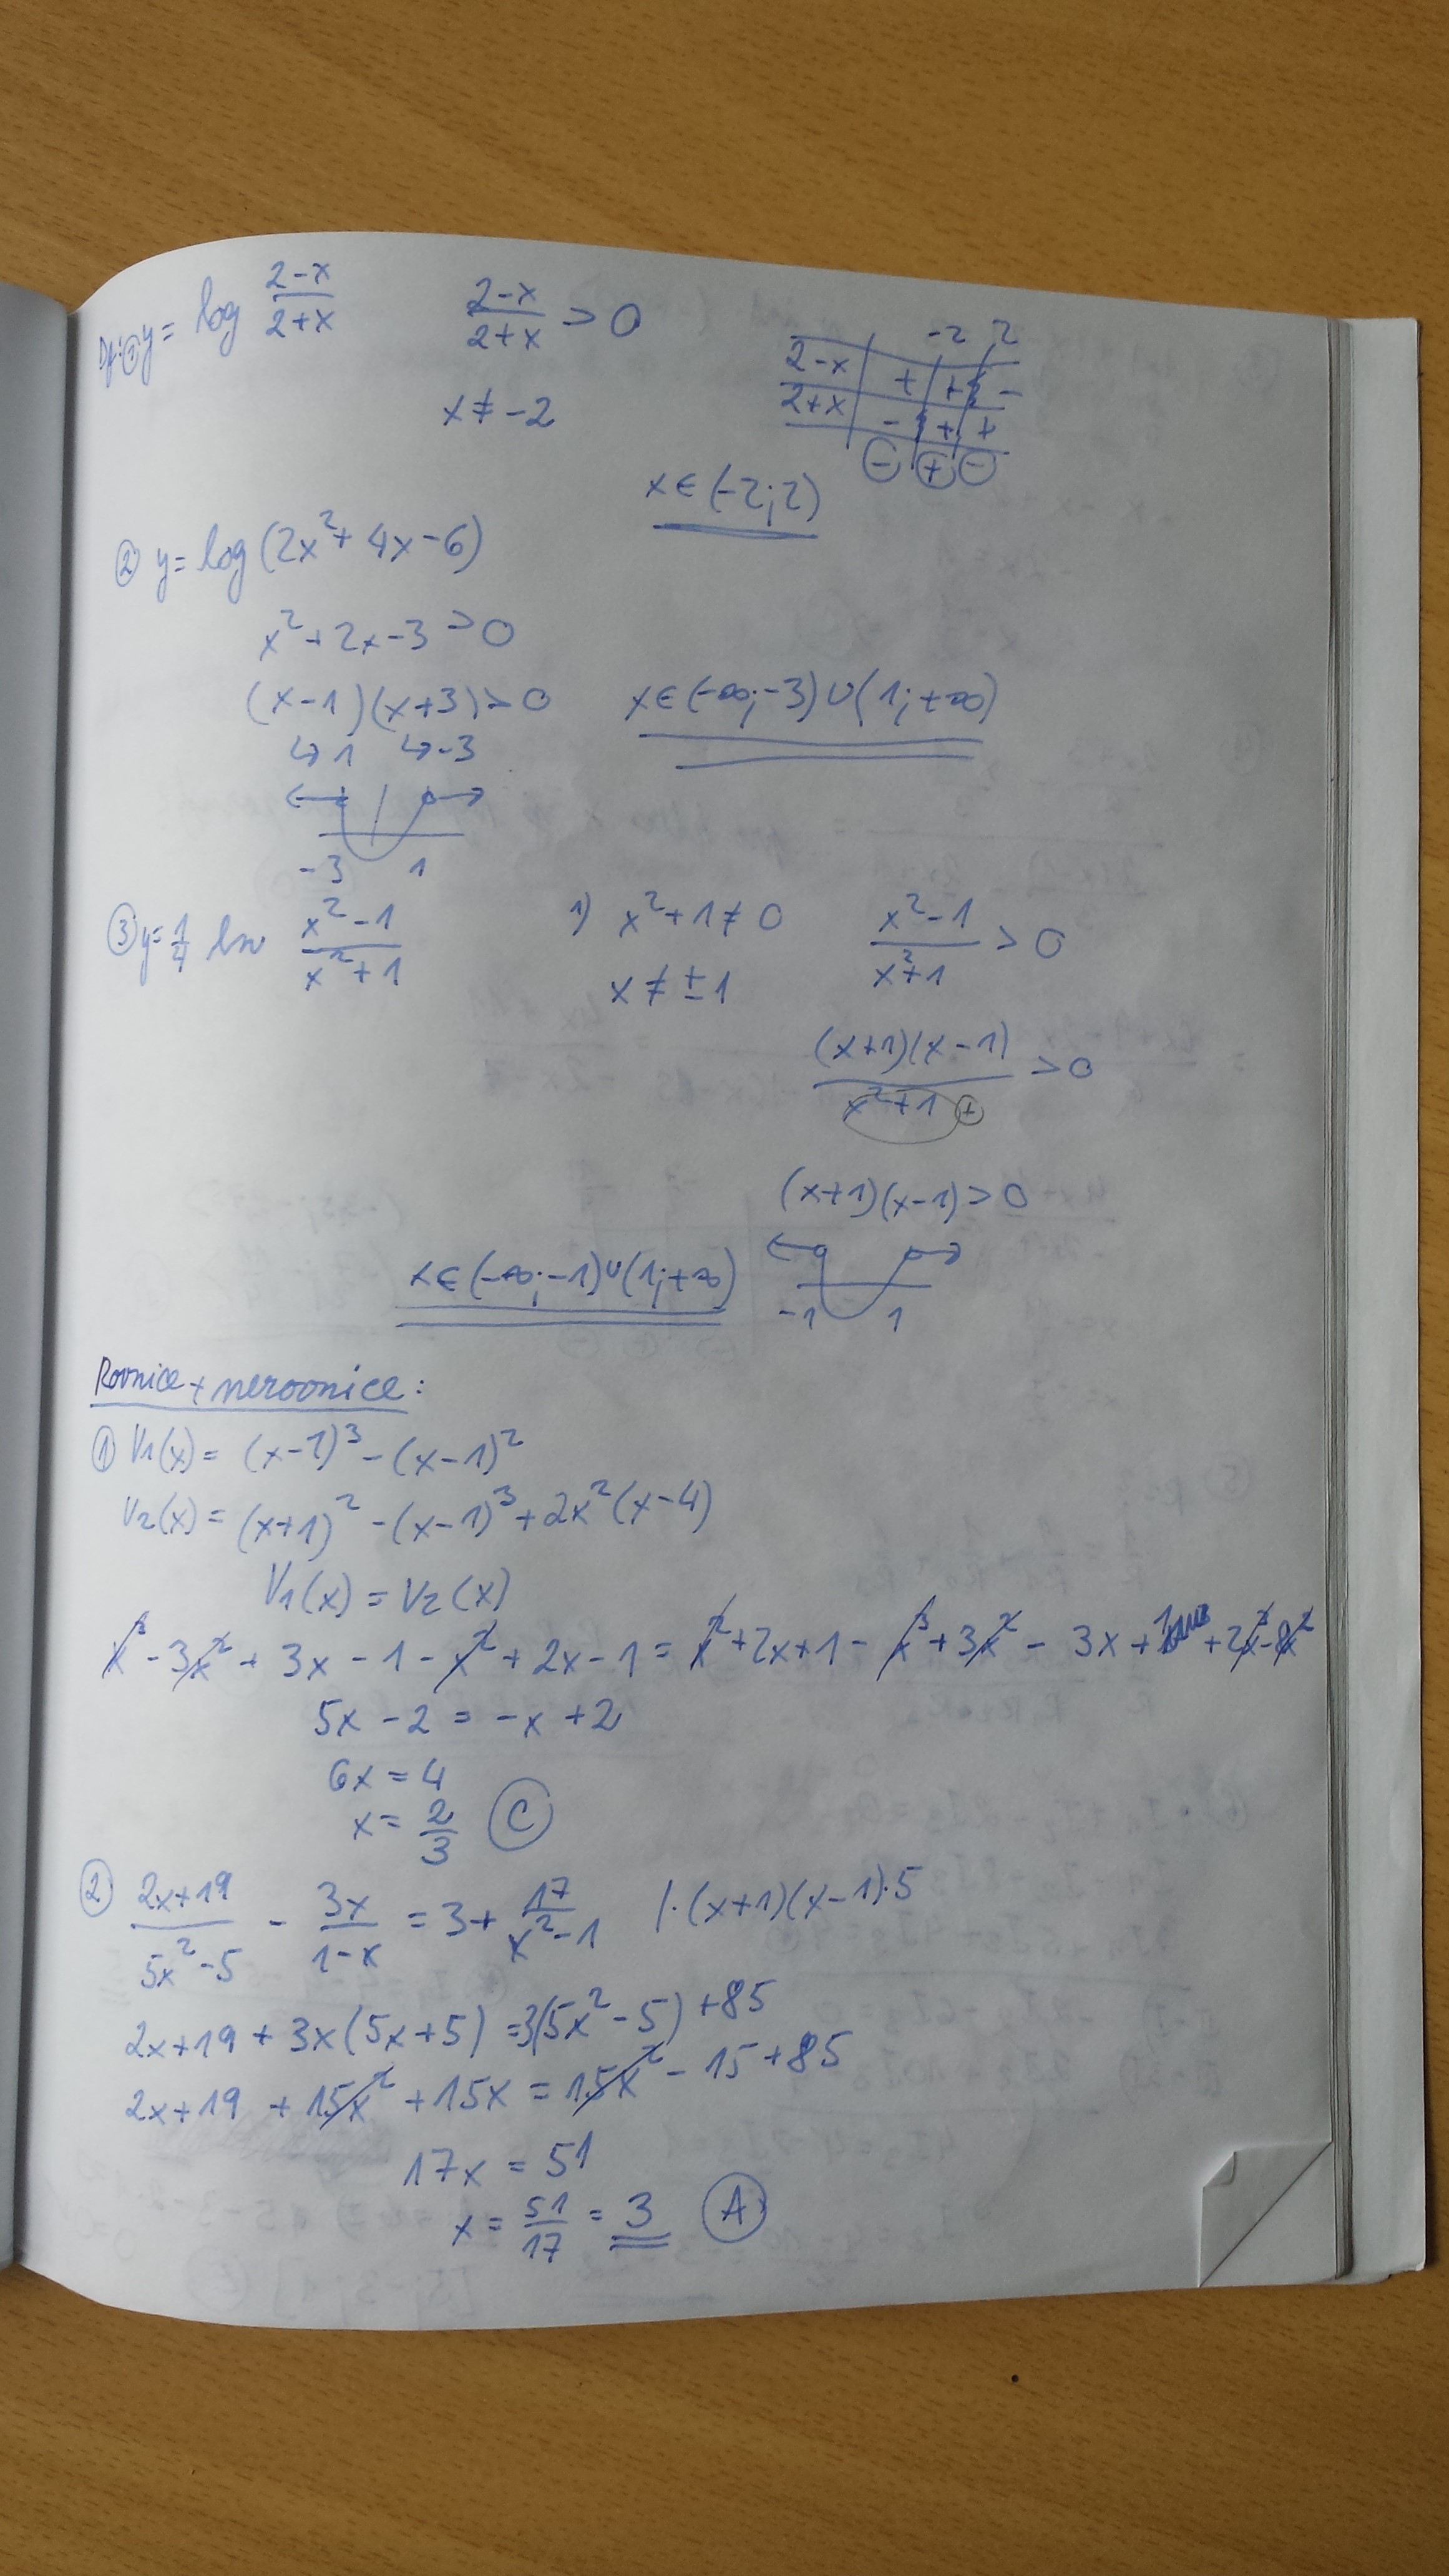 Df: ① y = log (2-x)/(2+x)    (2-x)/(2+x) > 0
-2 2
2-x | + | + | -
2+x | - | + | +
⊖ ⊕ ⊖
x ≠ -2
x ∈ (-2; 2)
② y = log (2x² + 4x - 6)
x² + 2x - 3 > 0
(x-1)(x+3) > 0    x ∈ (-∞; -3) ∪ (1; +∞)
↳ 1 ↳ -3
-3 1
③ y = 1/4 ln (x²-1)/(x²+1)    1) x² + 1 ≠ 0    (x²-1)/(x²+1) > 0
x ≠ ±1
(x+1)(x-1)/(x²+1) > 0
⊕
(x+1)(x-1) > 0
x ∈ (-∞; -1) ∪ (1; +∞)
-1 1
Rovnice + nerovnice:
① V₁(x) = (x-1)³ - (x-1)²
V₂(x) = (x+1)² - (x-1)³ + 2x²(x-4)
V₁(x) = V₂(x)
x³ - 3x² + 3x - 1 - x² + 2x - 1 = x² + 2x + 1 - x³ + 3x² - 3x + 1 + 2x³ - 8x²
5x - 2 = -x + 2
6x = 4
x = 2/3 Ⓒ
② (2x+19)/(5x²-5) - 3x/(1-x) = 3 + 17/(x²-1)    /·(x+1)(x-1)·5
2x+19 + 3x(5x+5) = 3(5x²-5) + 85
2x+19 + 15x² + 15x = 15x² - 15 + 85
17x = 51
x = 51/17 = 3 Ⓐ